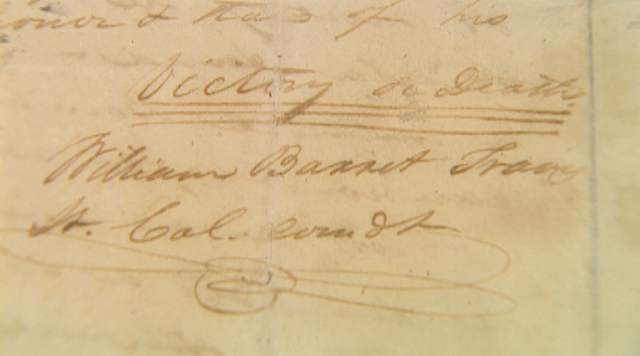 honor & that of his
Victory or Death
William Barret Travis
Lt. Col. comdt